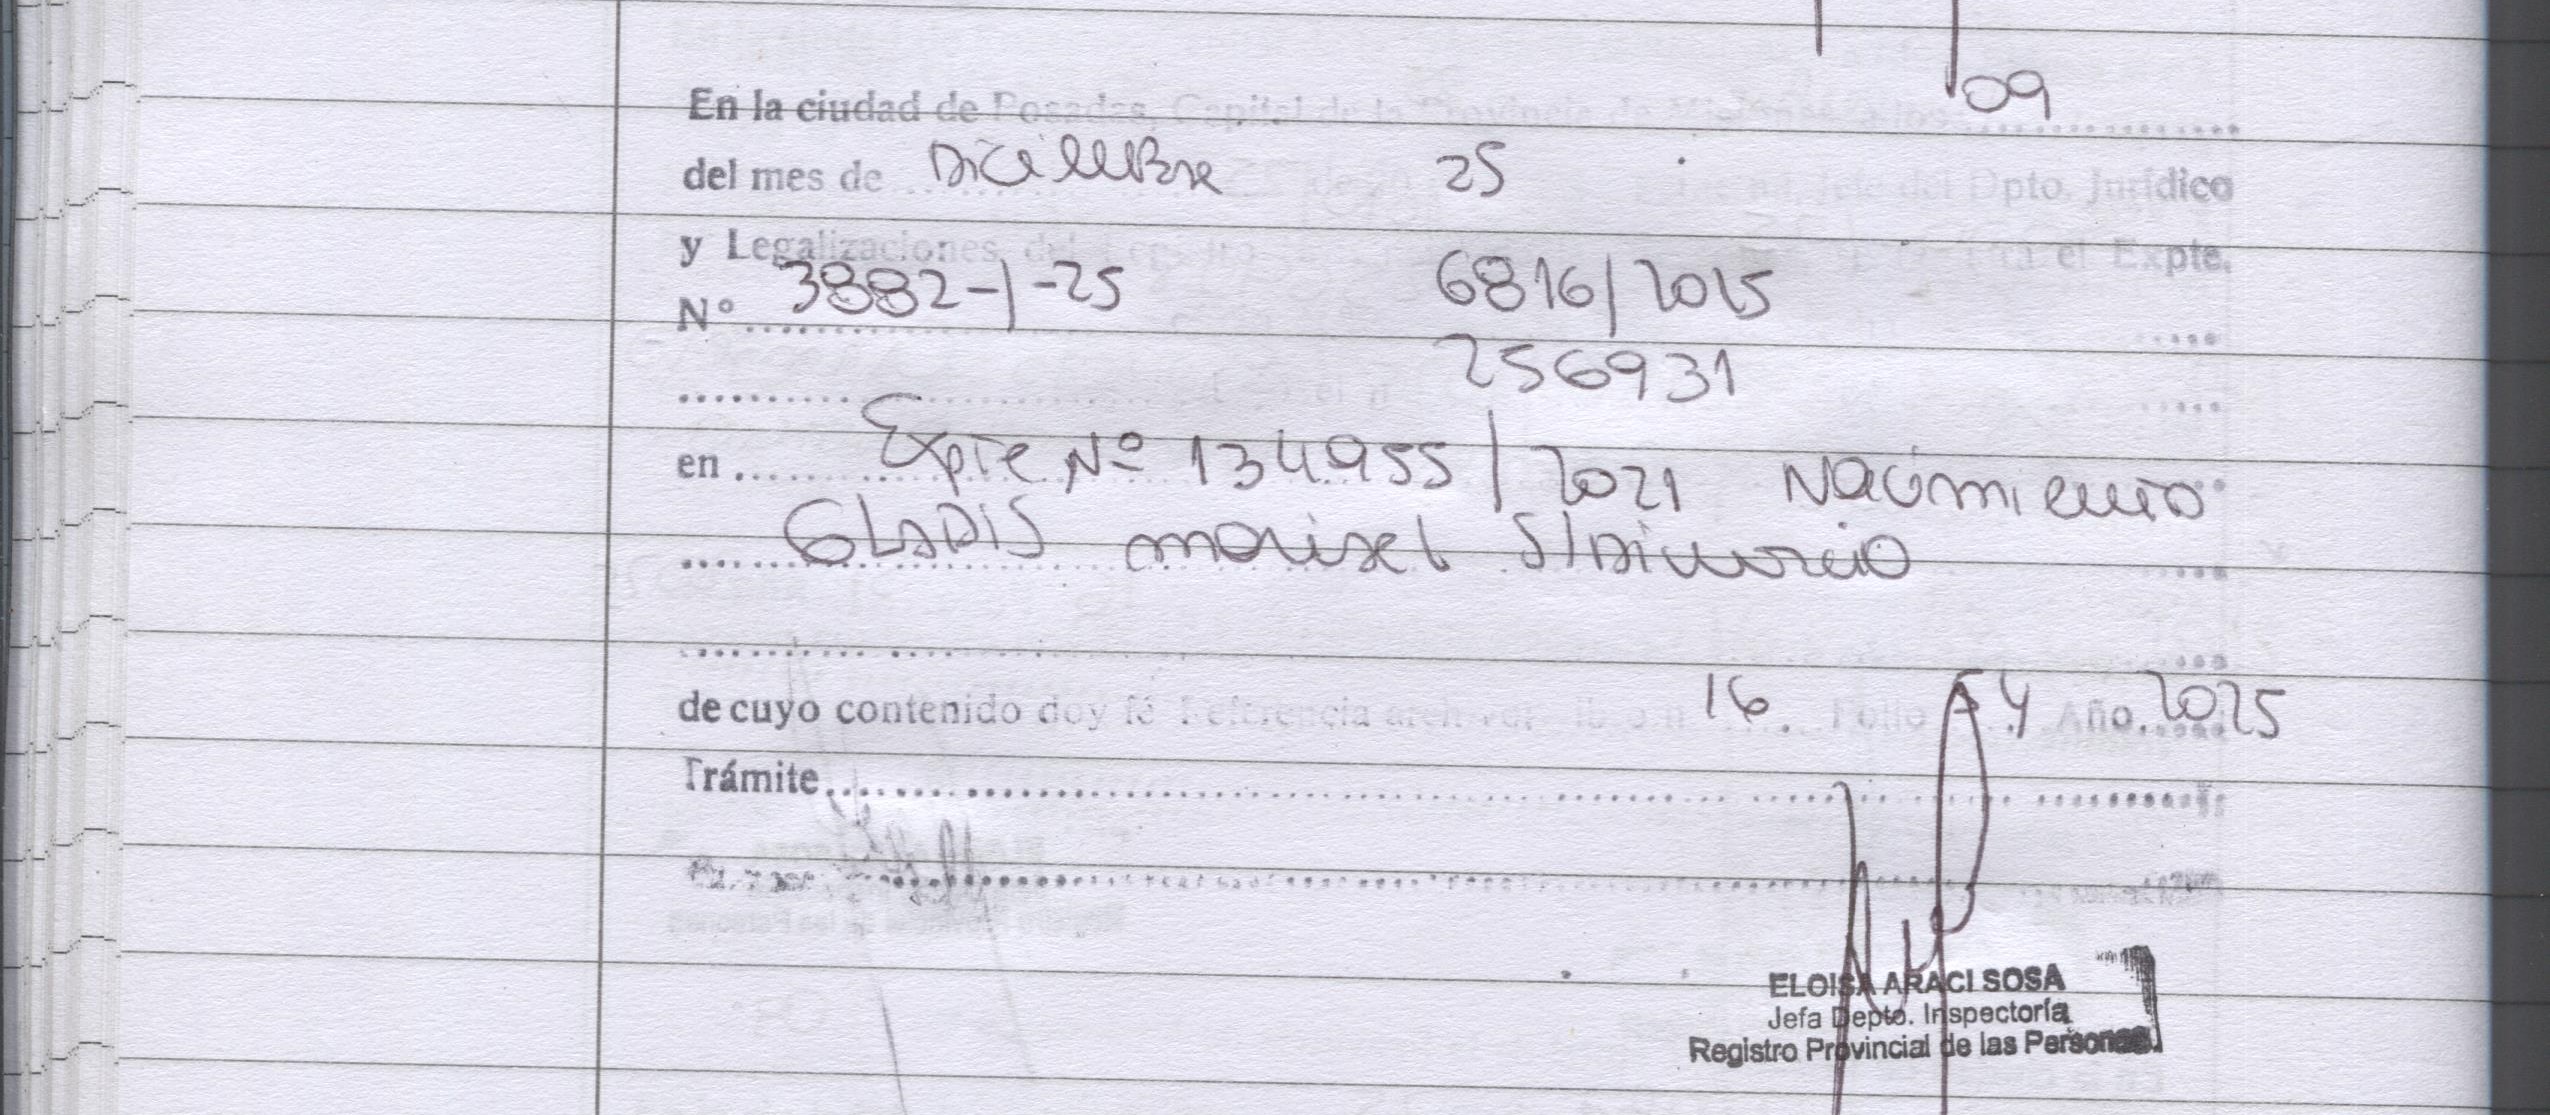 09
En la ciudad de Posadas, Capital de la Provincia de Misiones
del mes de Diciembre 25 Jefe del Dpto. Jurídico
y Legalizaciones del Registro el Expte.
Nº 3882-1-25 6816/2025
256931
en Expte Nº 134955/2021 Nacimiento
GLADIS marisel S/Divorcio
de cuyo contenido doy fé Referencia 16. Folio 54 Año 2025
Trámite
ELOISA ARACI SOSA
Jefa Depto. Inspectoría
Registro Provincial de las Personas